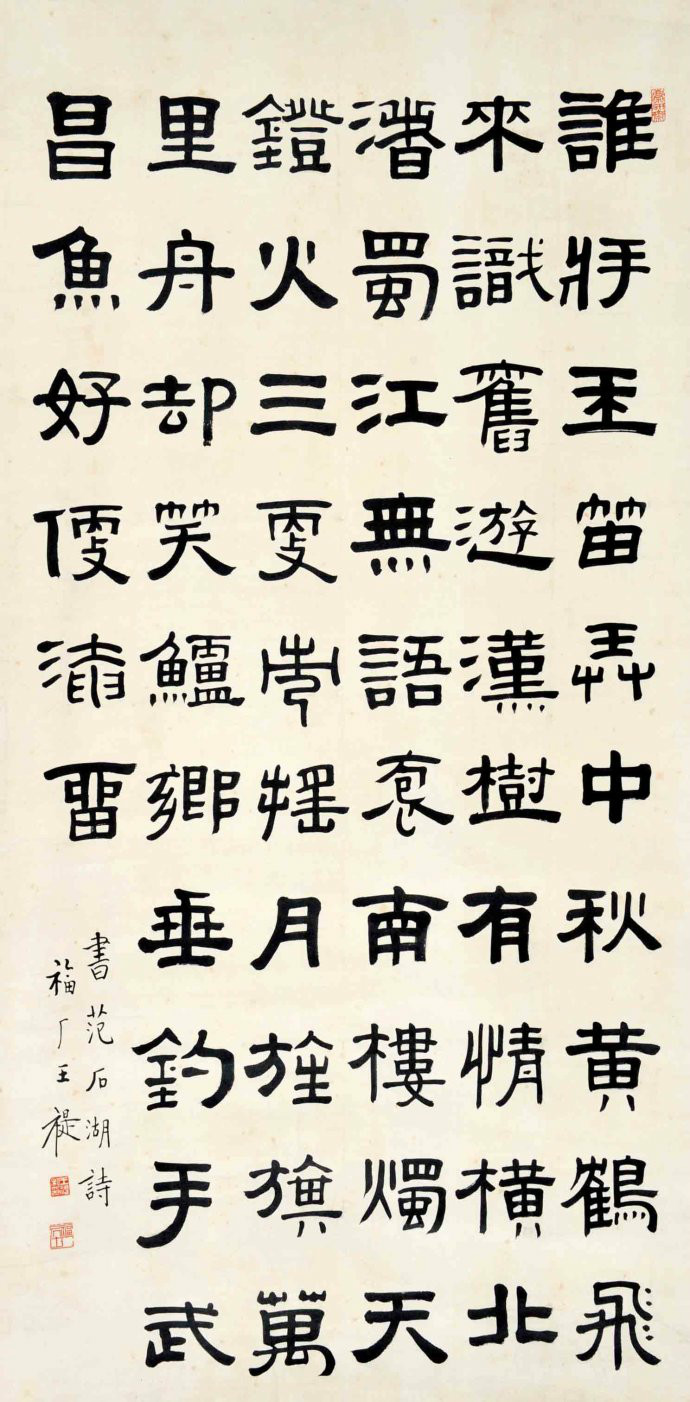 誰將玉笛弄中秋黃鶴飛
來識舊遊漢樹有情橫北
渚蜀江無語袌南樓燭天
鐙火三更市搖月旌旗萬
里舟却笑鱸鄉垂釣手武
昌魚好便淹留
書范石湖詩
福厂王禔